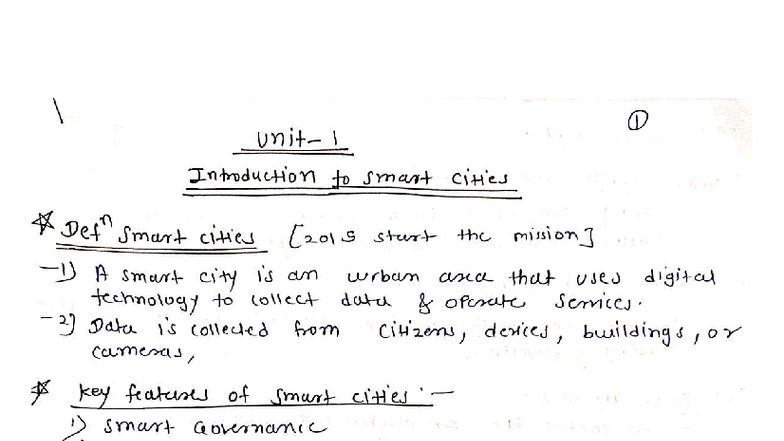 ①
Unit-1
Introduction to smart cities
☆ Defⁿ smart cities [2015 start the mission]
-1) A smart city is an urban area that uses digital
technology to collect data & operate services.
-2) Data is collected from citizens, devices, buildings, or
cameras,
☆ key features of smart cities:-
1) smart Governanic